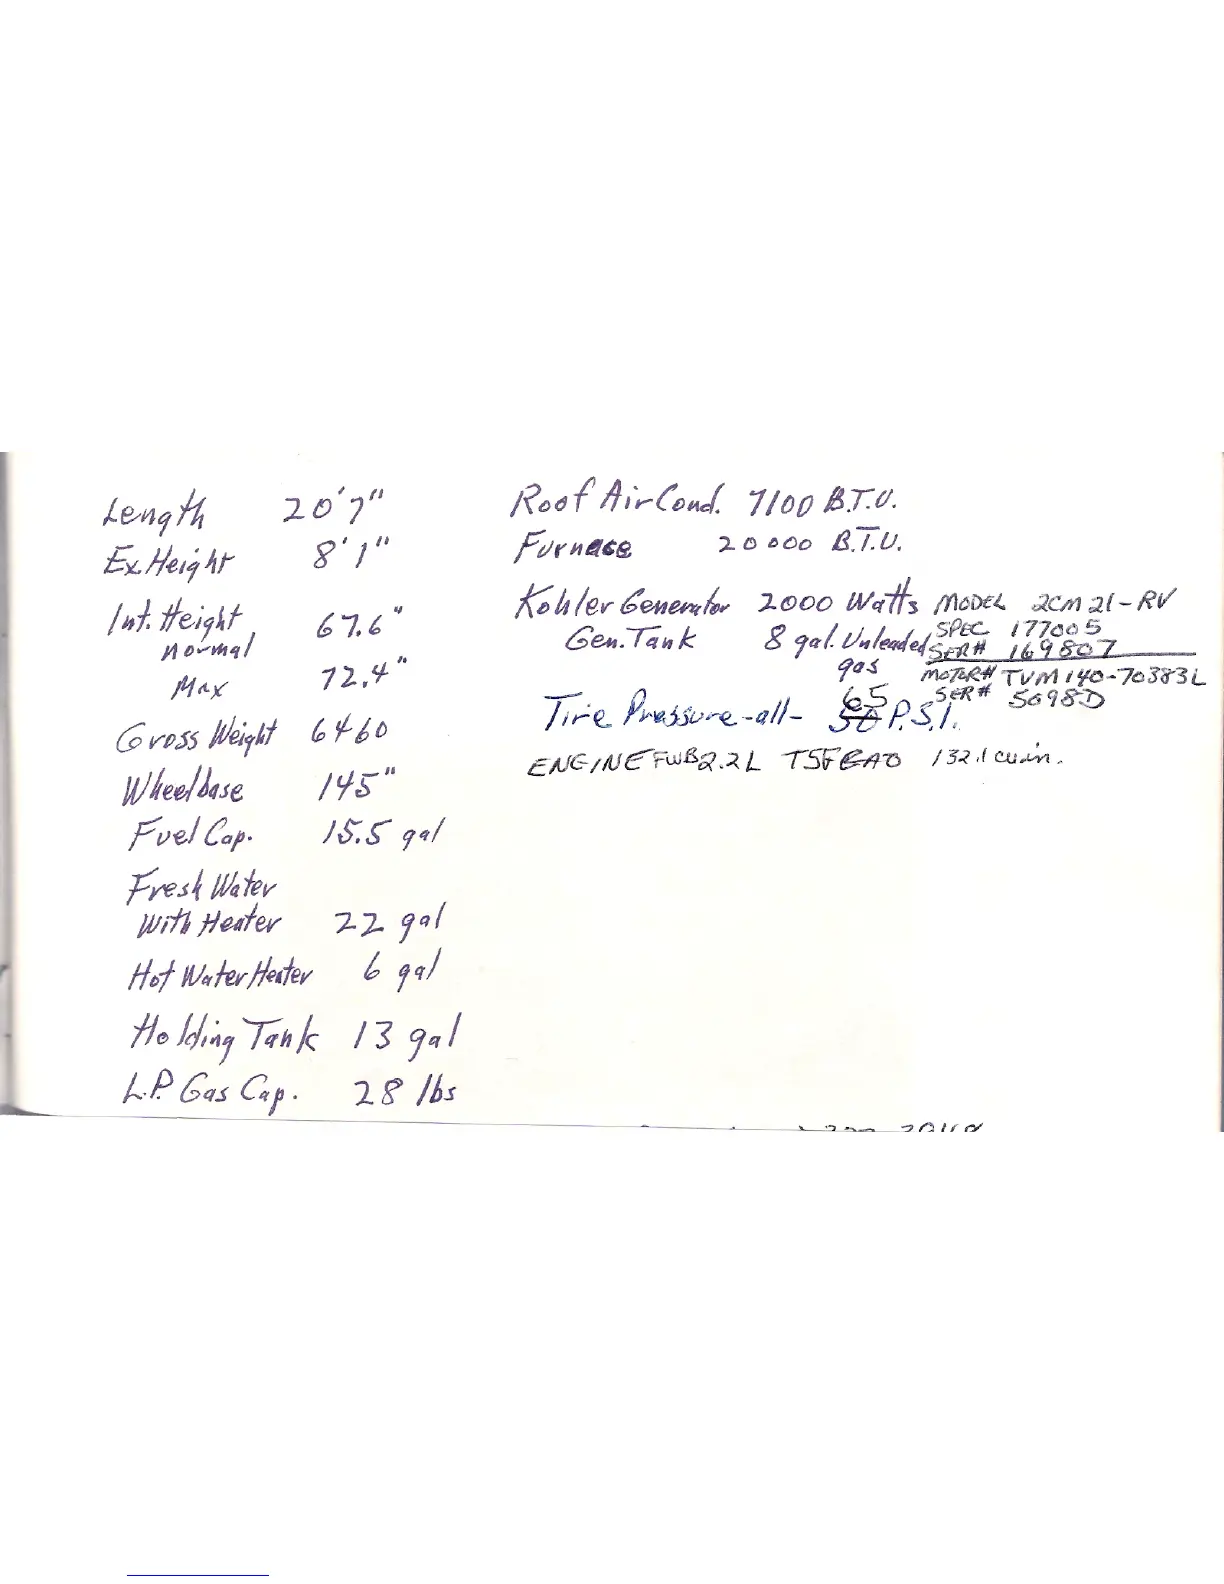 Length 20'7"
Ex. Height 8'1"
Int. Height
normal 67.6"
Max 72.4"
Gross Weight 6460
Wheelbase 145"
Fuel Cap. 15.5 gal
Fresh Water
With Heater 22 gal
Hot Water Heater 6 gal
Holding Tank 13 gal
L.P. Gas Cap. 28 lbs
Roof Air Cond. 7100 B.T.U.
Furnace 20000 B.T.U.
Kohler Generator 2000 Watts MODEL 2CM 21-RV
SPEC 177005
Gen. Tank 8 gal. Unleaded SER# 169807
gas MOTOR# TVM 140-70383L
SER# 5698D
65
Tire Pressure-all- 50 P.S.I.
ENGINE FWB2.2L 132.1 cu.in.